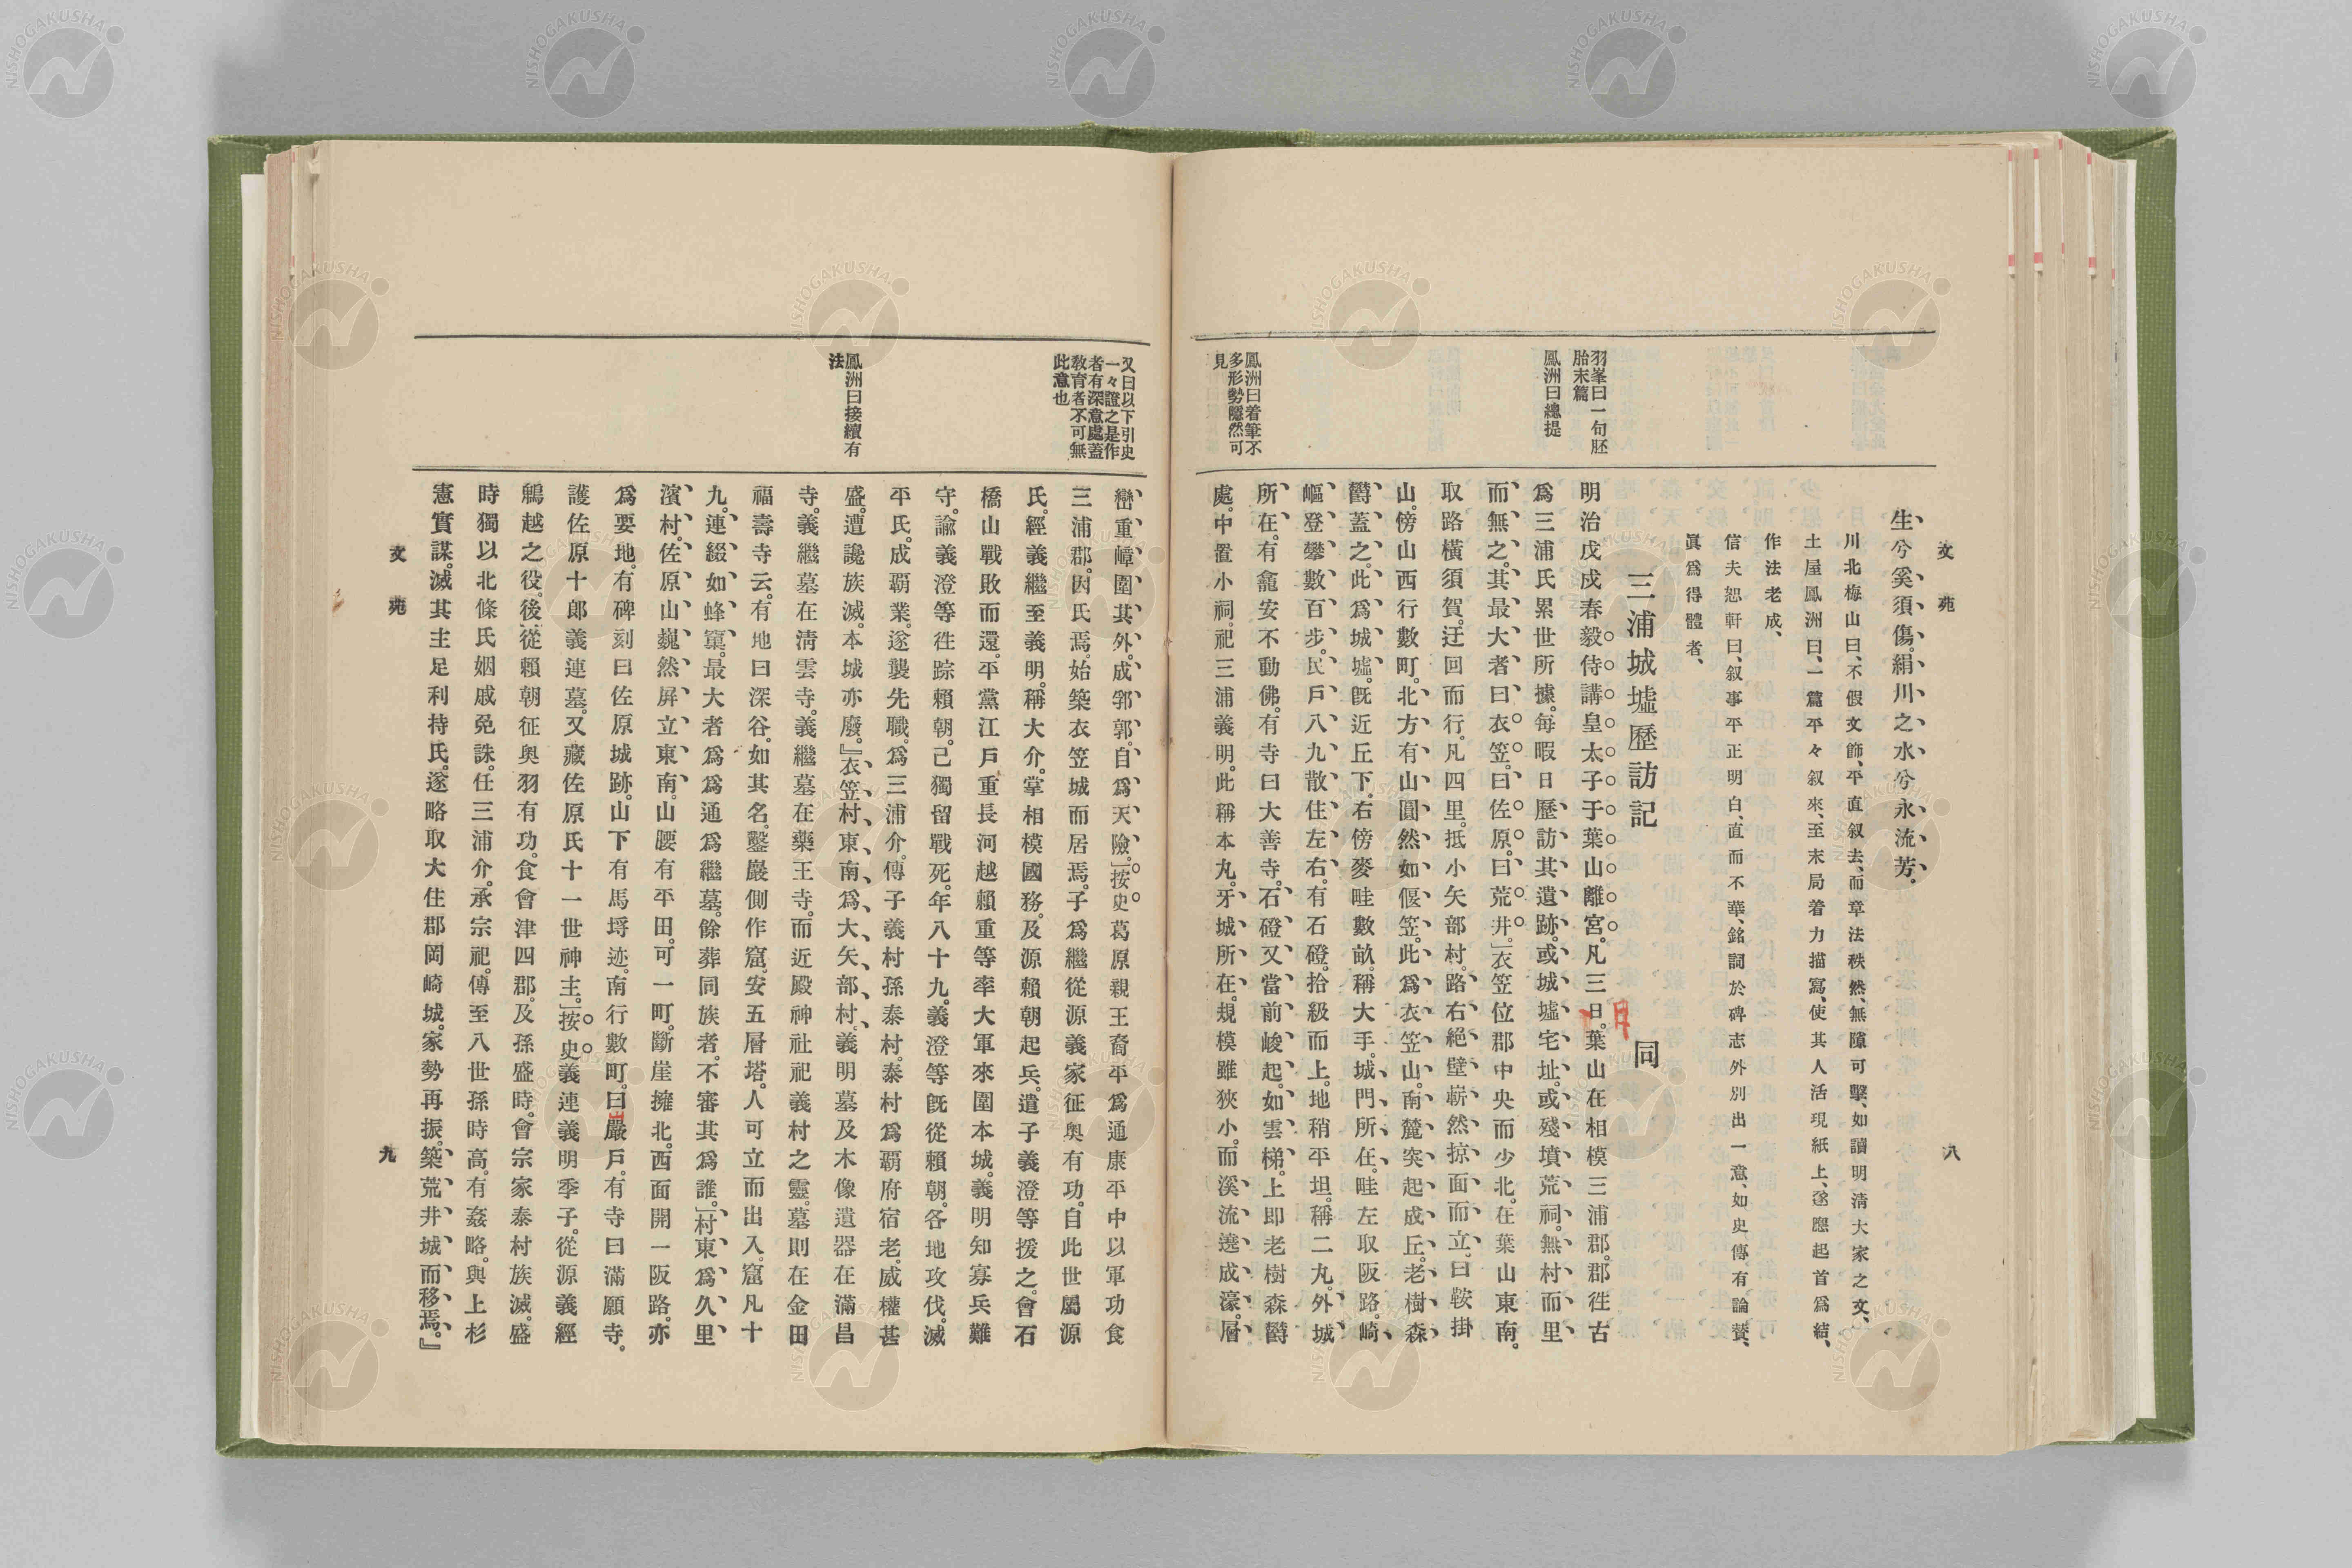 文苑
八
生兮奚須傷。絹川之水兮永流芳。
川北梅山曰、不假文飾、平直叙去、而章法秩然、無隙可擊、如讀明淸大家之文、
土屋鳳洲曰、一篇平々叙來、至末局着力描寫、使其人活現紙上、遂應起首爲結、
作法老成、
信夫恕軒曰、叙事平正明白、直而不華、銘詞於碑志外別出一意、如史傳有論贊、
眞爲得體者、
三浦城墟歷訪記
同
羽峯曰一句胚
胎末篇
鳳洲曰總提
鳳洲曰着筆不
多形勢隱然可
見
明治戊戌春毅侍講皇太子于葉山離宮。凡三日。葉山在相模三浦郡。郡徃古
月
爲三浦氏累世所據。每暇日歷訪其遺跡。或城墟宅址。或殘墳荒祠。無村而里
而無之。其最大者曰衣笠。曰佐原。曰荒井。」衣笠位郡中央而少北。在葉山東南。
取路橫須賀。迂回而行。凡四里。抵小矢部村。路右絕壁嶄然掠面而立。曰鞍掛
山。傍山西行數町。北方有山圓然如偃笠。此爲衣笠山。南麓突起成丘。老樹森
欝蓋之。此爲城墟。旣近丘下。右傍麥畦數畝。稱大手。城門所在。畦左取阪路。崎
嶇登攀數百步。民戶八九散住左右。有石磴。拾級而上。地稍平坦。稱二九。外城
所在。有龕安不動佛。有寺曰大善寺。石磴又當前峻起。如雲梯。上即老樹森欝
處。中置小祠。祀三浦義明。此稱本丸。牙城所在。規模雖狹小。而溪流遶成濠。層
又曰以下引史
一々證之是作
者有深意處蓋
敎育者不可無
此意也
鳳洲曰接續有
法
巒重嶂圍其外。成郛郭。自爲天險。」按史葛原親王裔平爲通康平中以軍功食
三浦郡。因氏焉。始築衣笠城而居焉。子爲繼從源義家征奧有功。自此世屬源
氏。經義繼至義明。稱大介。掌相模國務。及源賴朝起兵。遣子義澄等援之。會石
橋山戰敗而還。平黨江戶重長河越賴重等率大軍來圍本城。義明知寡兵難
守。諭義澄等徃踪賴朝。己獨留戰死。年八十九。義澄等旣從賴朝。各地攻伐。滅
平氏。成覇業。遂襲先職。爲三浦介。傳子義村孫泰村。泰村爲覇府宿老。威權甚
盛。遭讒族滅。本城亦廢。』衣笠村東南爲大矢部村。義明墓及木像遺器在滿昌
寺。義繼墓在淸雲寺。義繼墓在藥王寺。而近殿神社祀義村之靈。墓則在金田
福壽寺云。有地曰深谷。如其名。鑿巖側作窟。安五層塔。人可立而出入。窟凡十
九。連綴如蜂窠。最大者爲爲通爲繼墓。餘葬同族者。不審其爲誰。」村東爲久里
濱村。佐原山巍然屛立東南。山腰有平田。可一町。斷崖擁北。西面開一阪路。亦
爲要地。有碑刻曰佐原城跡。山下有馬埒迹。南行數町。曰巖戶。有寺曰滿願寺。
護佐原十郞義連墓。又藏佐原氏十一世神主。」按史義連義明季子。從源義經
鵯越之役。後從賴朝征奧羽有功。食會津四郡。及孫盛時。會宗家泰村族滅。盛
時獨以北條氏姻戚免誅。任三浦介。承宗祀。傳至八世孫時高。有姦略。與上杉
憲實謀。滅其主足利持氏。遂略取大住郡岡崎城。家勢再振。築荒井城而移焉。』
文苑
九